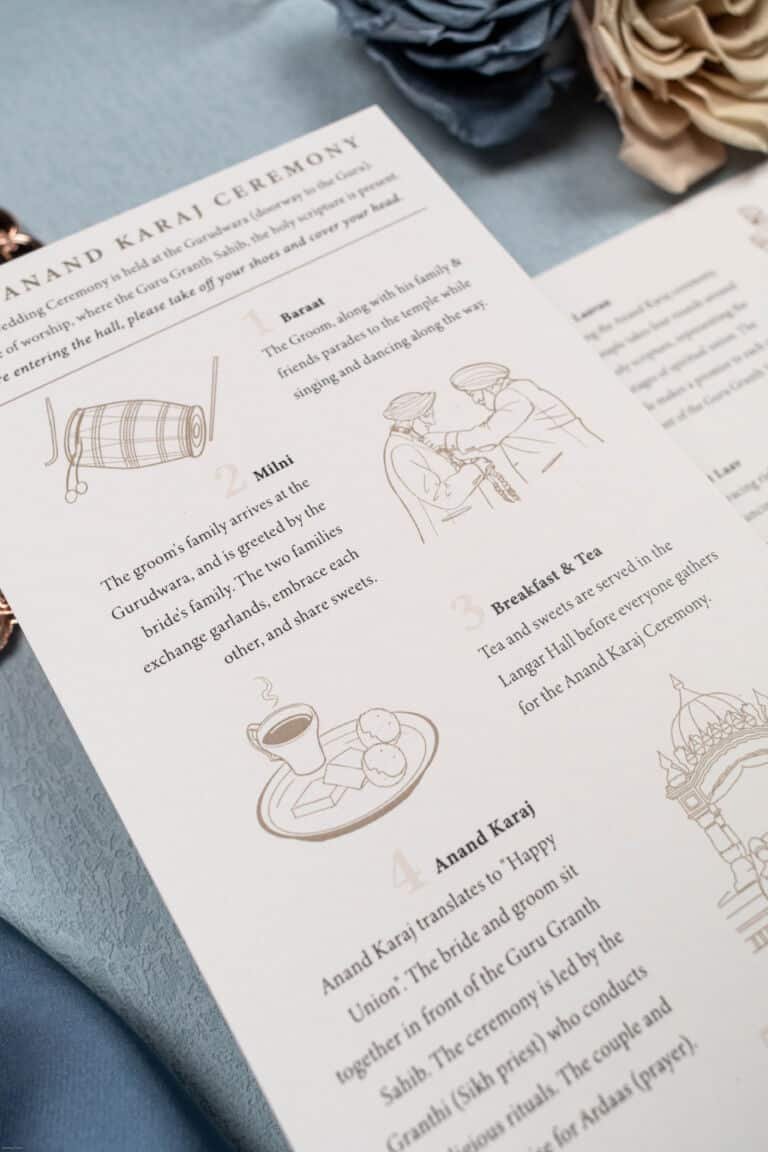 ANAND KARAJ CEREMONY
edding Ceremony is held at the Gurudwara (doorway to the Guru).
e of worship, where the Guru Granth Sahib, the holy scripture is present.
re entering the hall, please take off your shoes and cover your head.
1 Baraat
The Groom, along with his family &
friends parades to the temple while
singing and dancing along the way.
2 Milni
The groom's family arrives at the
Gurudwara, and is greeted by the
bride's family. The two families
exchange garlands, embrace each
other, and share sweets.
3 Breakfast & Tea
Tea and sweets are served in the
Langar Hall before everyone gathers
for the Anand Karaj Ceremony.
4 Anand Karaj
Anand Karaj translates to "Happy
Union". The bride and groom sit
together in front of the Guru Granth
Sahib. The ceremony is led by the
Granthi (Sikh priest) who conducts
ligious rituals. The couple and
se for Ardaas (prayer).
Laavan
the Anand Karaj ceremony
takes four rounds around
scripture, representing the
stages of spiritual
makes a promise to each
of the Guru Granth
Laav